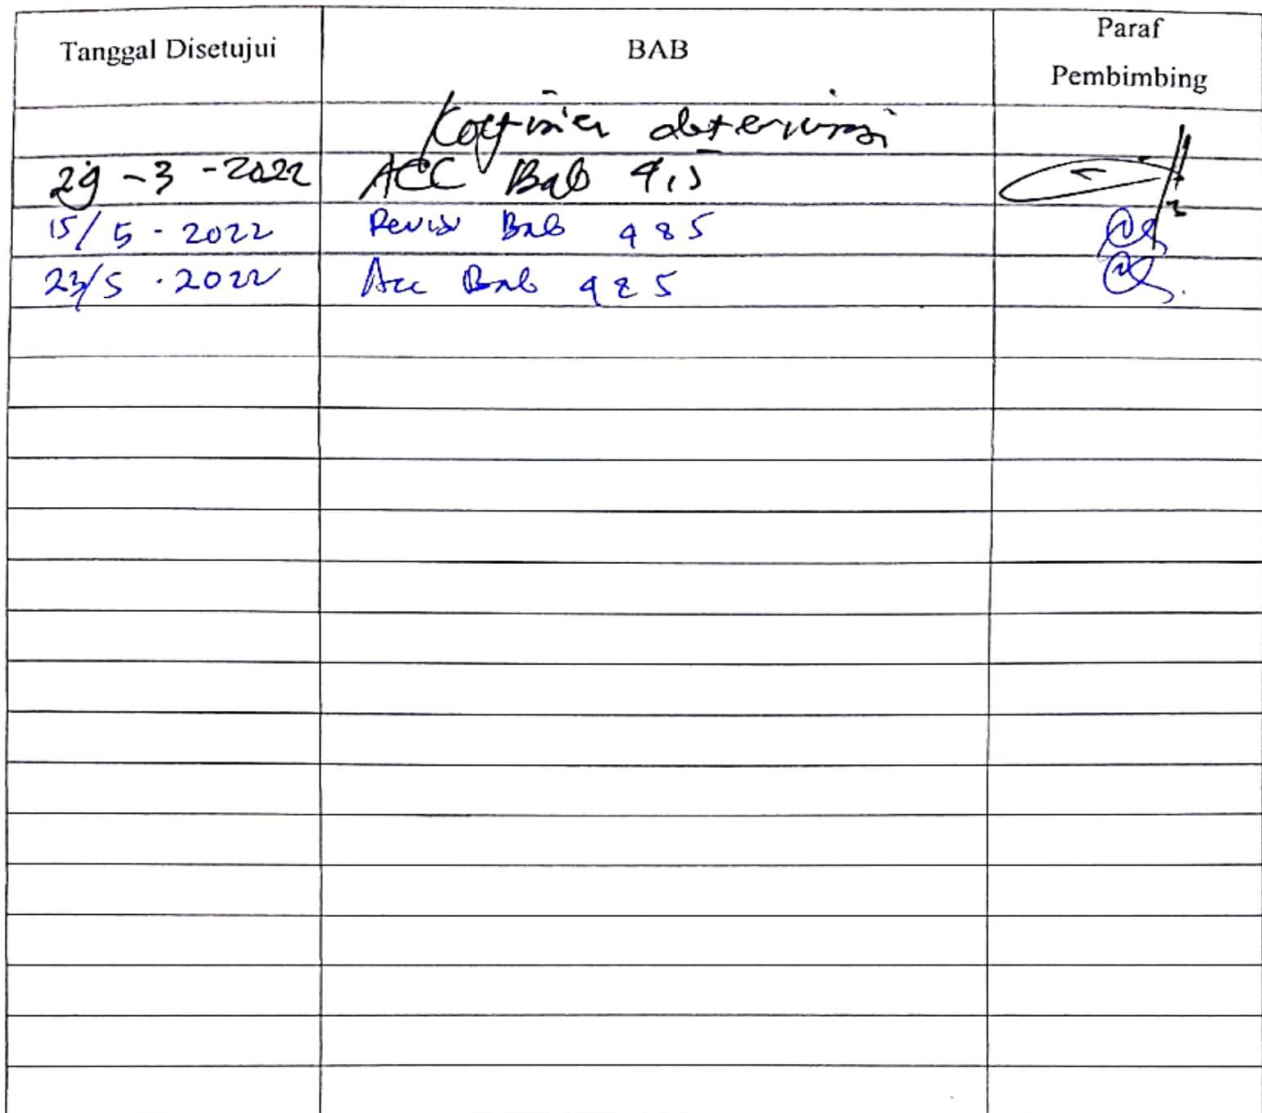 Tanggal Disetujui BAB Paraf
Pembimbing
Koefisien determinasi
29 - 3 - 2022 ACC Bab 4,5
15/5 - 2022 Revisi Bab 4 & 5
23/5 - 2022 Acc Bab 4 & 5